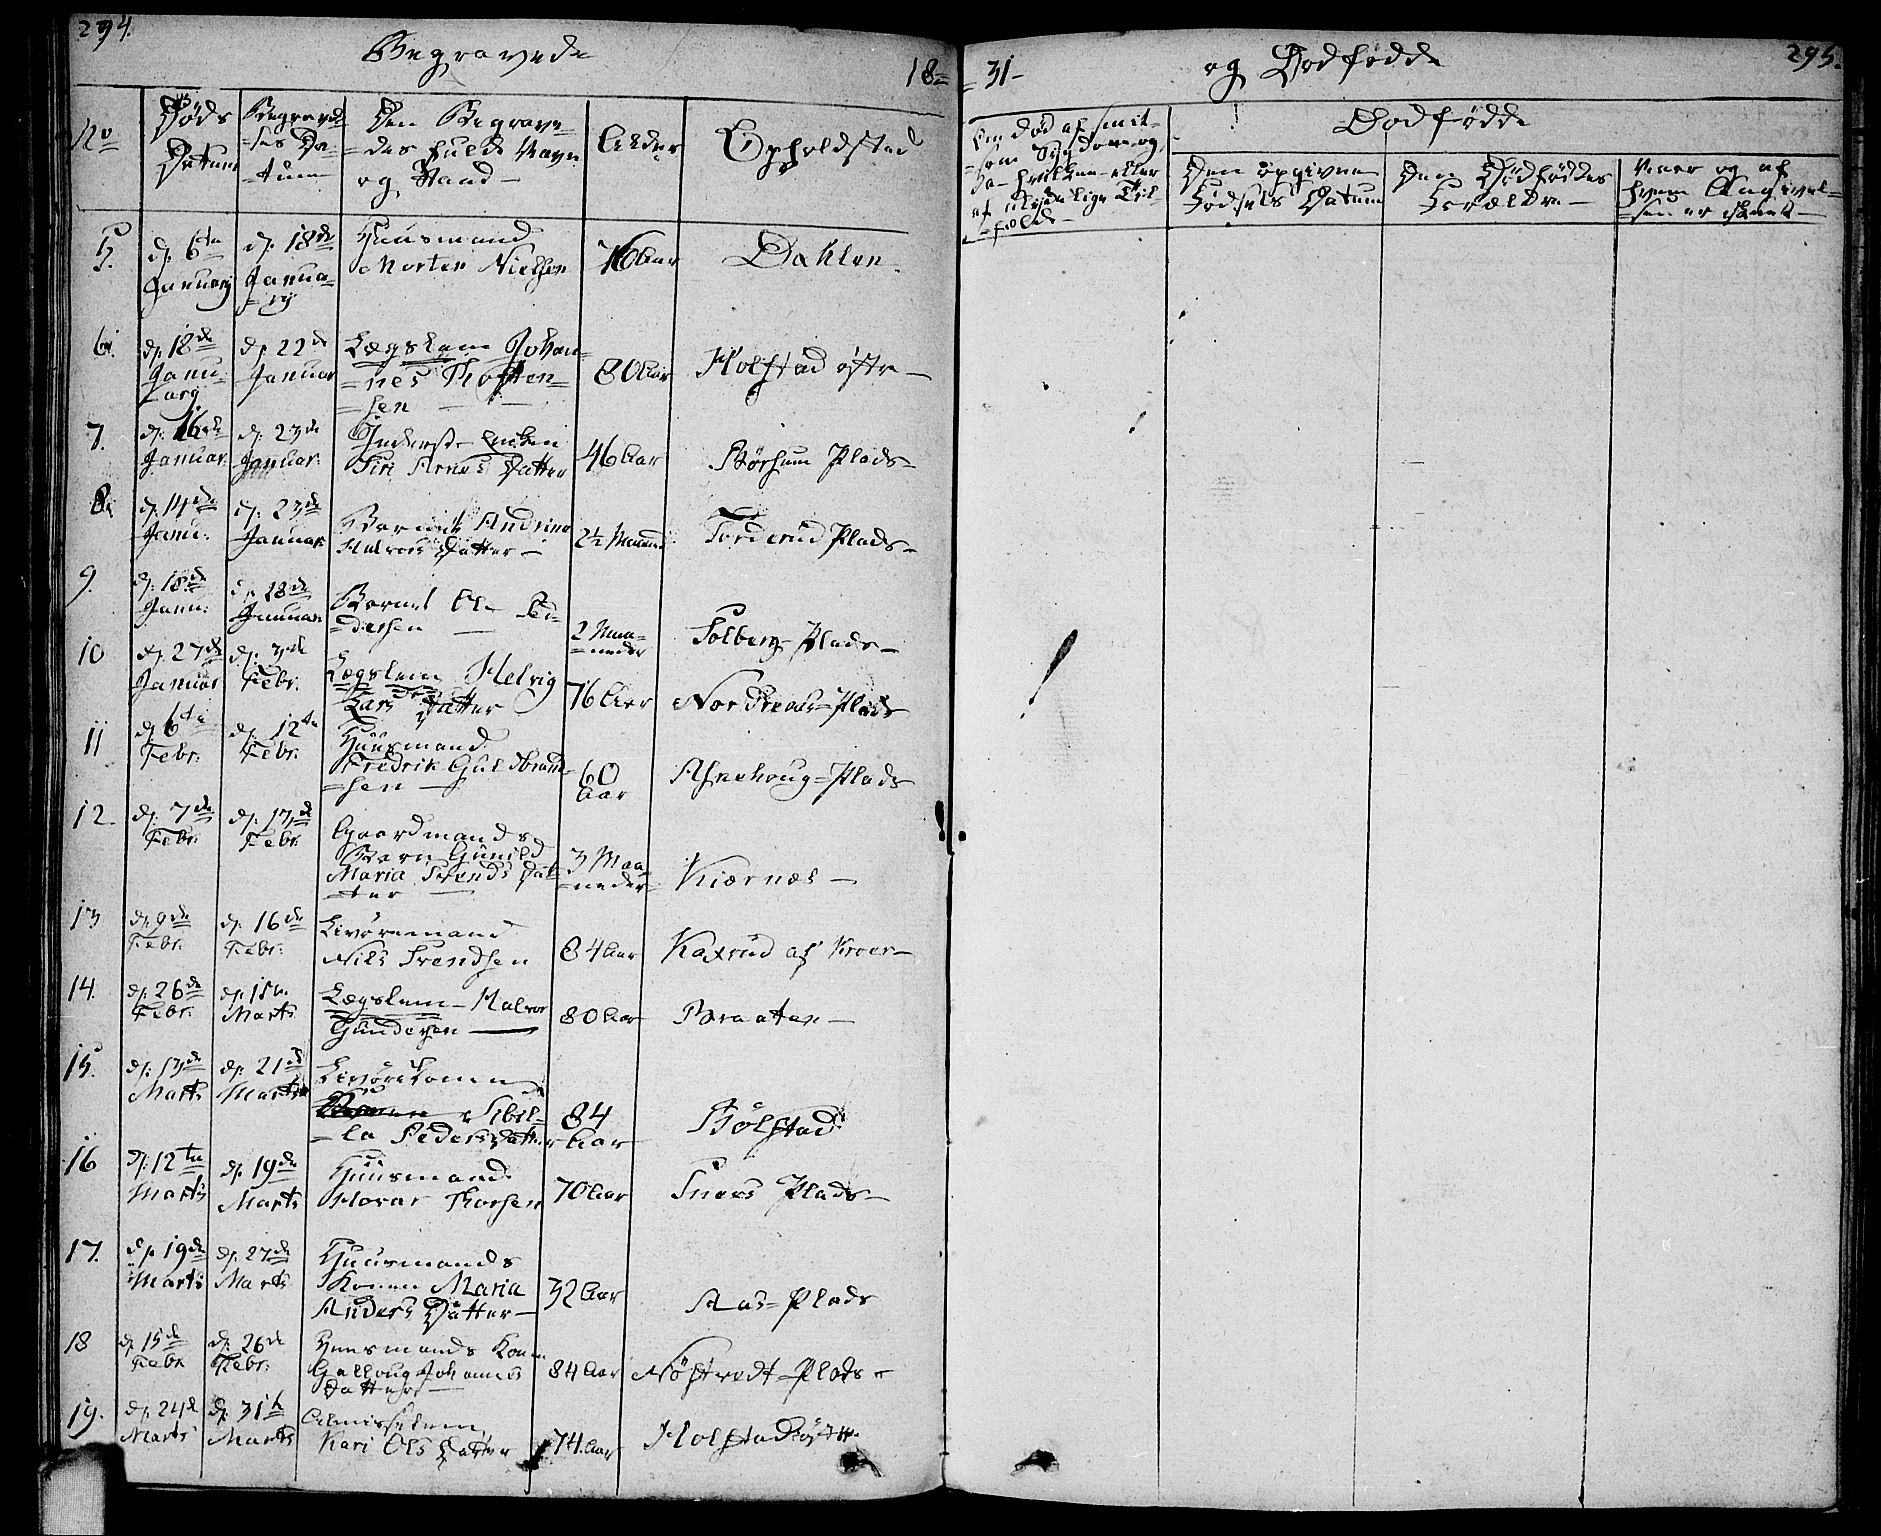 294.
Begravede
18=
No
Døds
Datum
Begravel=
=ses Da=
=tum
Den Begrave=
=des fulde Navn
og Stand
Alder
Opholdsted
5.
d. 6te
Januarj
d. 18de
Janua=
=rj
Huusmand
Morten Nielsen
76 Aar
Dahlen.
6.
d. 18de
Janu=
arj.
d. 22de
Januar
Lægslem Johan=
=nes Thosten=
=sen
80 Aar
Holstad østre
7.
d. 16de
Januar.
d. 23de
Januar.
Inderst Enken
Siri Arnes Datter
46 Aar
Børsum Plads
8.
d. 14de
Janu.
d. 23de
Januar.
Barnet Andrine
Halvors Datter
2½ Maaned
Forderud Plads
9.
d. 18de
Janu:
d. 28de
Januar.
Barnet Ole
=dersen
2 Maa=
=neder
Solberg Plads
10
d. 27de
Januar
d. 3de
Febr.
Lægslem Helvig
Lars Datter
76 Aar
Nordreaas Plads
11
d. 6te
Febr.
d. 12te
Febr.
Huusmand
Fredrik Gulbrand=
=sen
60
Aar
Asnehoug=Plads
12.
d. 7de
Febr.
d. 13de
Febr.
Gaardmands
Barn Gunild
Maria Svends Dat=
=ter
3 Maa=
=neder
Kiærnæs
13
d. 9de
Febr.
d. 16de
Febr.
Livøremand
Nils Svendsen
84 Aar
Kaxrud af Kroer
14.
d. 26de
Febr.
d. 1ste
Marts
Lægslem Halvor
Gundersen
80 Aar
Braaten
15.
d. 13de
Marts
d. 21de
Marts
Livørekonen
Sibil=
=la Peders Datter
84
Aar
Bølstad
16
d. 12te
Marts
d. 19de
Marts
Huusmand
Hovar Thorsen
70 Aar
Snees Plads
17.
d. 19de
Marts
d. 27de
Marts
Huusmands
Konen Maria
Anders Datter
32 Aar
Aas=Plads
18
d. 15de
Febr.
d. 26de
Febr.
Huusmands Kone
Golloug Johannes
Datter
84 Aar
Nøstvedt=Plads
19.
d. 24de
Marts
d. 31te
Marts
Almisselem
Kari Ols Datter
74 Aar
Holstad østre
=31=
og Dødfødde
295.
Om død af smit=
=som Sygdom og
da hvilken eller
af ulykkelige Til=
=fælde
Dødfødde
Den opgivne
Fødsels Datum
Den Dødføddes
Forældre
Naar og af
hvem Angivel=
=sen er skeet